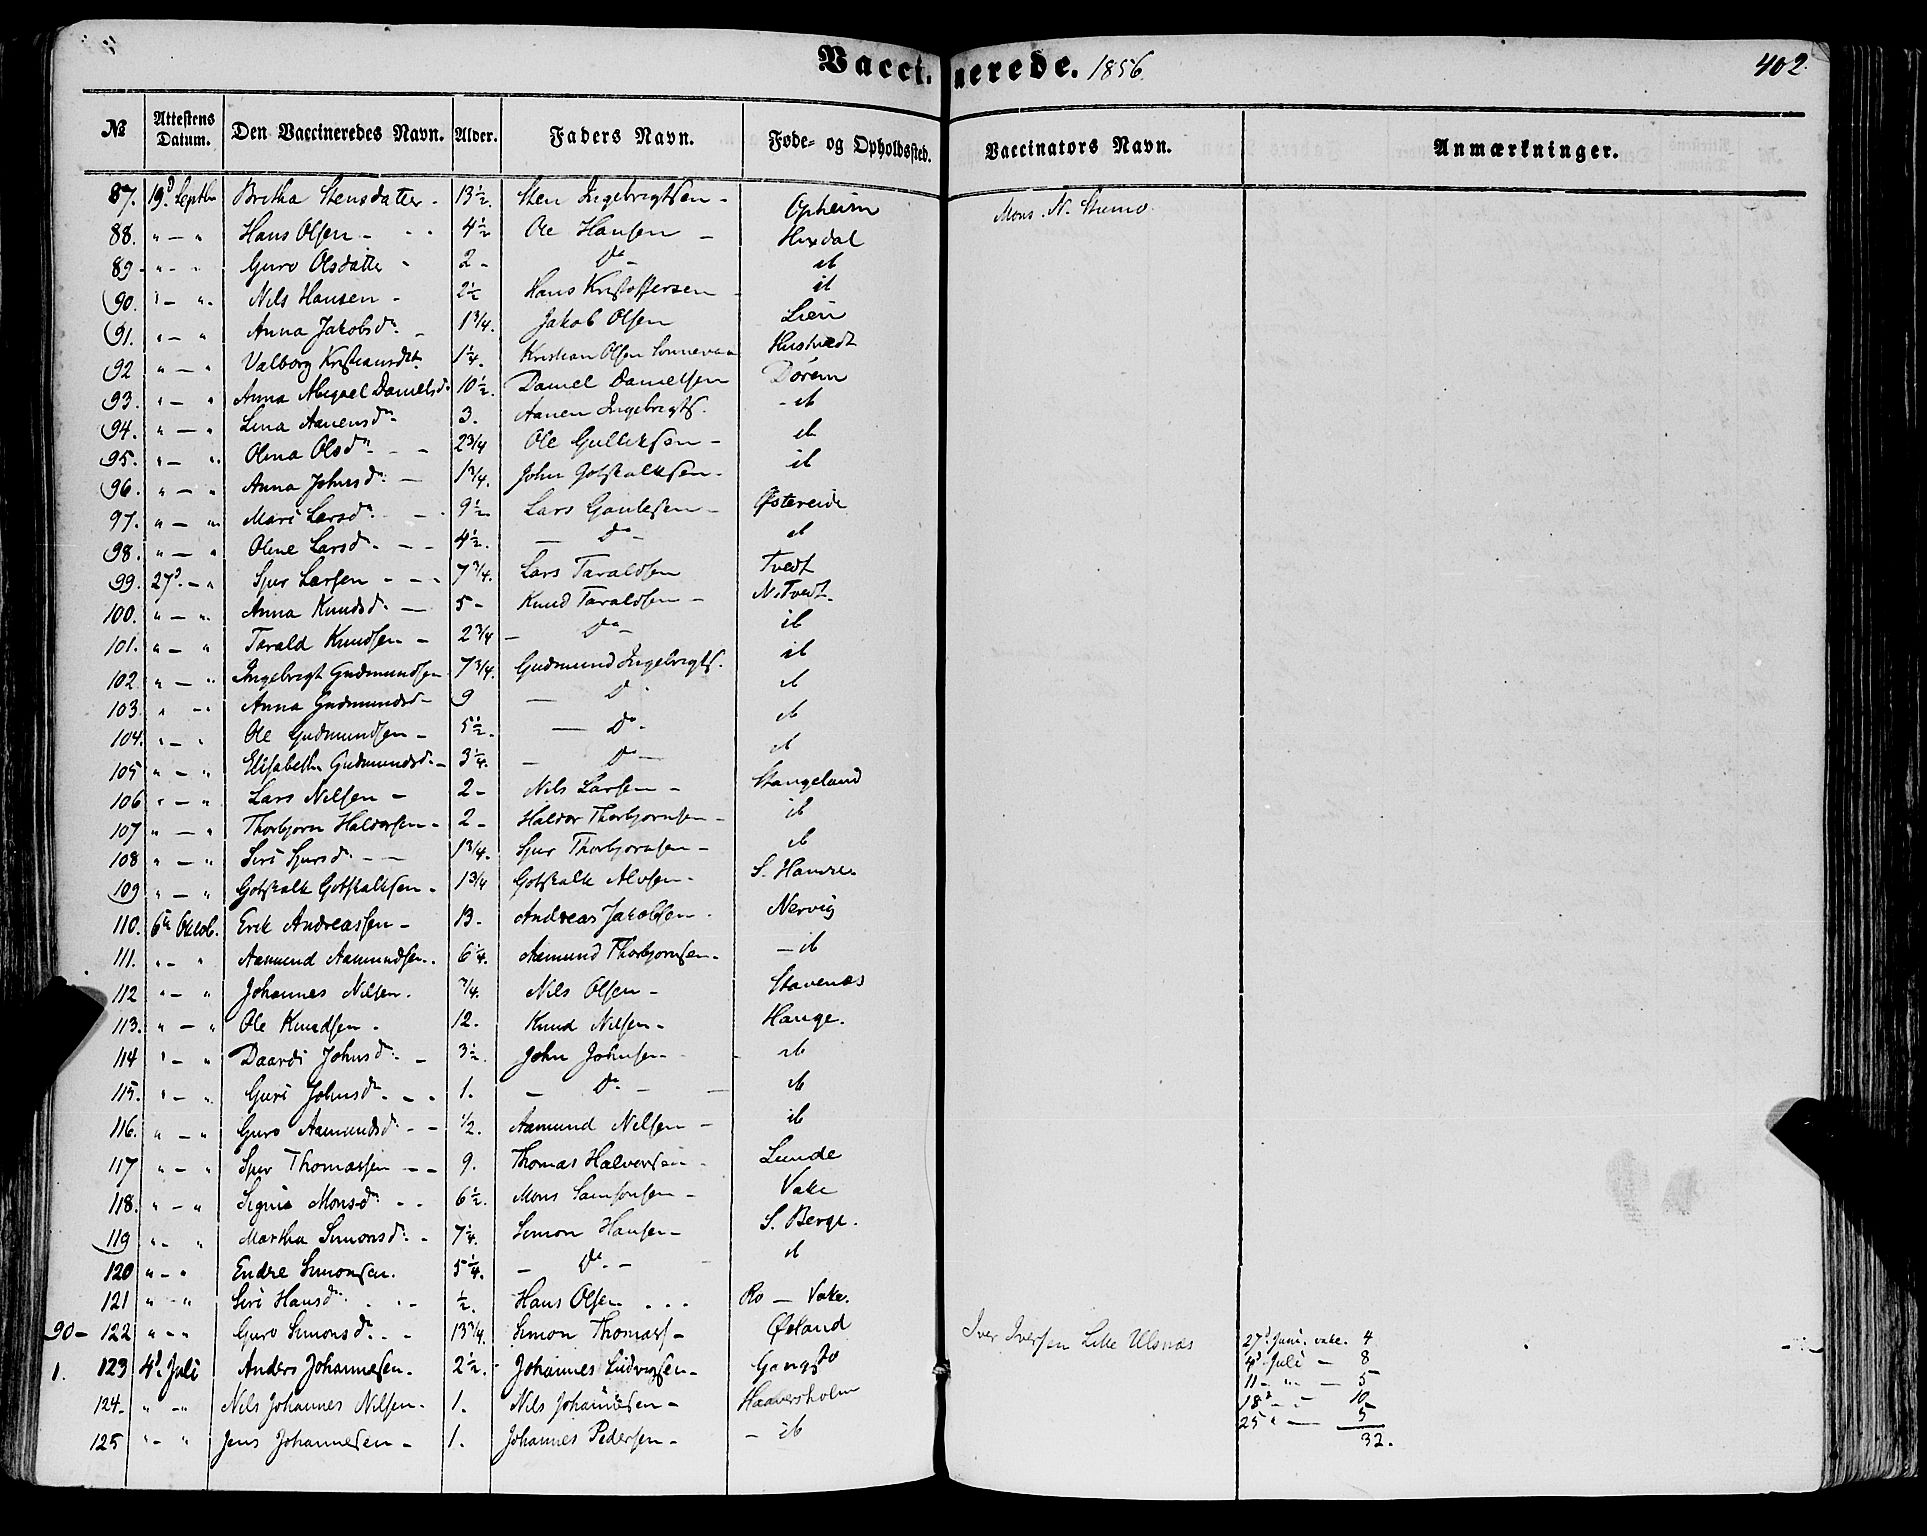 Vaccinerede. 1856. 402.
№ Attestens Datum. Den Vaccineredes Navn. Alder. Faders Navn. Føde- og Opholdssted. Vaccinators Navn. Anmærkninger.
87. 19d Septbr Britha Stensdatter - 13½. Sten Ingebrigtsen - Opheim Mons N.
88. " - " Hans Olsen - - - 4½ Ole Hansen -
89 - " - " Guro Olsdatter - 2 - Do - ib
90. " - " Nils Hansen - 2½ Hans Kristoffersen - ib
91. " - " Anna Jakobsdr. - 1¾. Jakob Olsen Lien
92 " - " Valborg Kristiansdtr. 1¼. Kristian Olsen Hustvedt
93. " - " Anna Abigael Danielsd. 10½. Daniel Danielsen
- ib
94. " - " Lina Aanensdr 3. Aanen Ingebrigts.
95. " - " Olina Olsdr. - - 2¾ Ole Gulleksen - ib
96. " - " Anna Johnsdr. - 1¾. John Gotskalksen. ib
97. " - " Mari Larsdr. - - 9½ Lars - Østereide
98. " - " Oline Larsdr. - - 4½. - Do - ib
99. 27d. - " Sjur Larsen - - - 7¾. Lars Taraldsen Tvedt
100. " - " Anna Knudsdr. - 5 - Knud Taraldsen - N. Tvedt.
101. " - " Tarald Knudsen - 2¾ - Do - ib
102 " - " Ingebrigt Gudmundsen 7¾. Gudmund Ingebrigts. ib
103. " - " Anna Gudmundsd - 9 - Do ib
104. " - " Ole Gudmundsen - 5½. - Do - ib
105 " - " Elisabetha Gudmundsd. - 3¼. - Do - ib
106 " - " Lars Nilsen - 2 - Nils Larsen - Stangeland
107 " - " Thorbjørn Haldorsen - 2 - Haldor Thorbjørnsen - ib
108 " - " Siri Sjursdr. - - 1¾. Sjur Thorbjørnsen - ib
109 " - " Gotskalk Gotskalksen. 1¾ Gotskalk Alvsen - S.
110. 6te Octob. Erik Andreassen - 13. Andreas Jakobsen - Nervig
111. " - " Aamund Aamundsen. 6¼. Aamund Thorbjørnsen - - ib
112 " - " Johannes Nilsen. ¾. Nils Olsen - Stavenæs
113. " - " Ole Knudsen. 12. Knud Nilsen - Hauge.
114 " - " Daardi Johnsdr. - 3½. John Johnsen - ib
115. " - " Guri Johnsdr. - - 1. - Do - - ib
116. " - " Guro Aamundsdr - - ½. Aamund Nilsen - ib
117 " - " Sjur Thomassen - - 9. Thomas Halvorsen - Lunde
118. " - " Signie Monsdr. - - 6½. Mons Samsonsen - Vake
119 " - " Martha Simonsdr. - 7¼. Simon Hansen - S. Berge.
120 " - " Endre Simonsen. 5¼. - Do - - ib
121 " - " Siri Hansdr. - - ½. Hans Olsen - - - Ro - Vake.
90 - 122 " - " Guro Simonsdr. - - 13¾. Simon Thomass - Øvland Iver Iversen Lille Ulsnæs 27d Juni, vake. 4
1. 123 4d. Juli Anders Johannesen. 2½. Johannes Ludvigsen - Gangstø 4d. Juli - 8
11 - " - 5
124 - " - " Nils Johannes Nilsen. 1. Nils Johannesen - Haaversholm 18d - - 10
25 " - 5
125 " - " Jens Johannesen - 1. Johannes Pedersen - - ib 32.